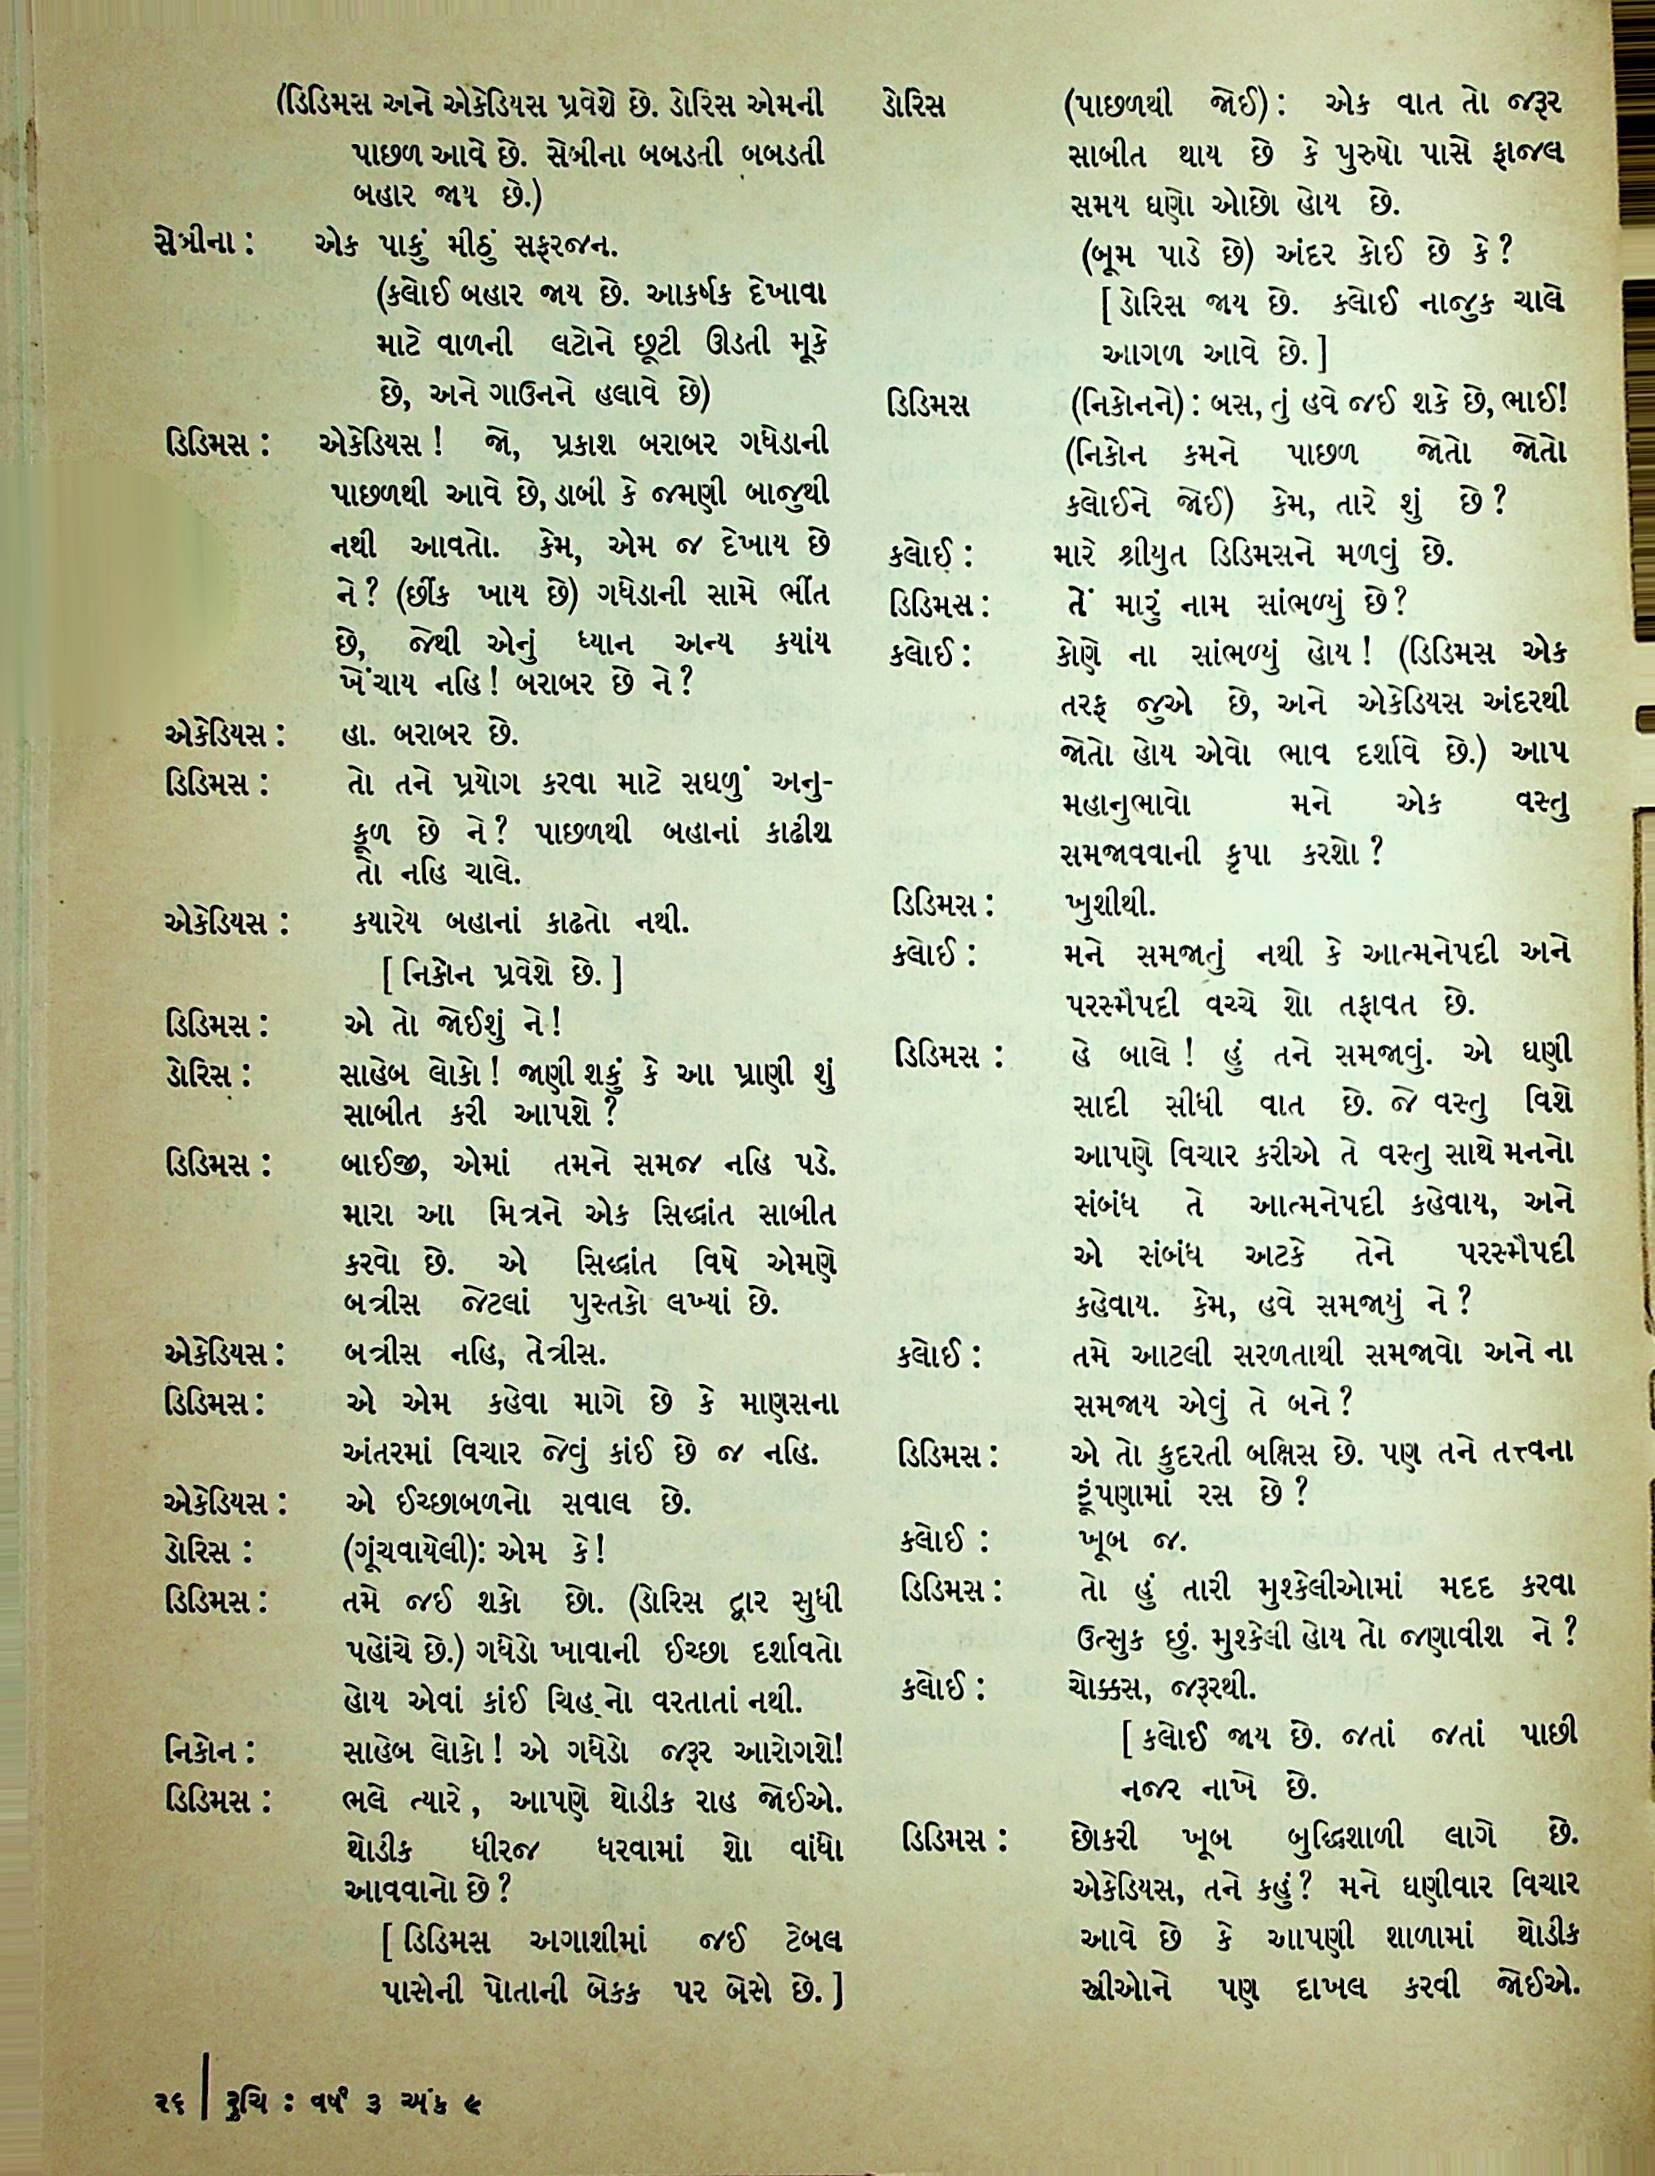 (ડિડિમસ અને એકેડિયસ પ્રવેશે છે. ડોરિસ એમની
પાછળ આવે છે. સેબ્રીના બબડતી બબડતી
બહાર જાય છે.)
સેબ્રીના : એક પાકું મીઠું સફરજન.
(ક્લોઈ બહાર જાય છે. આકર્ષક દેખાવા
માટે વાળની લટોને છૂટી ઊડતી મૂકે
છે, અને ગાઉનને હલાવે છે)
ડિડિમસ : એકેડિયસ ! જો, પ્રકાશ બરાબર ગધેડાની
પાછળથી આવે છે, ડાબી કે જમણી બાજુથી
નથી આવતો. કેમ, એમ જ દેખાય છે
ને? (છીંક ખાય છે) ગધેડાની સામે ભીંત
છે, જેથી એનું ધ્યાન અન્ય કયાંય
ખેંચાય નહિ! બરાબર છે ને?
એકેડિયસ : હા. બરાબર છે.
ડિડિમસ : તો તને પ્રયોગ કરવા માટે સઘળું અનુ-
કૂળ છે ને? પાછળથી બહાનાં કાઢીશ
તો નહિ ચાલે.
એકેડિયસ : કયારેય બહાનાં કાઢતો નથી.
[ નિકોન પ્રવેશે છે. ]
ડિડિમસ : એ તો જોઈશું ને!
ડોરિસ : સાહેબ લોકો! જાણી શકું કે આ પ્રાણી શું
સાબીત કરી આપશે ?
ડિડિમસ : બાઈજી, એમાં તમને સમજ નહિ પડે.
મારા આ મિત્રને એક સિદ્ધાંત સાબીત
કરવો છે. એ સિદ્ધાંત વિષે એમણે
બત્રીસ જેટલાં પુસ્તકો લખ્યાં છે.
એકેડિયસ : બત્રીસ નહિ, તેત્રીસ.
ડિડિમસ : એ એમ કહેવા માગે છે કે માણસના
અંતરમાં વિચાર જેવું કાંઈ છે જ નહિ.
એકેડિયસ : એ ઈચ્છાબળનો સવાલ છે.
ડોરિસ : (ગૂંચવાયેલી): એમ કે!
ડિડિમસ : તમે જઈ શકો છો. (ડોરિસ દ્વાર સુધી
પહોંચે છે.) ગધેડો ખાવાની ઈચ્છા દર્શાવતો
હોય એવાં કાંઈ ચિહ્નો વરતાતાં નથી.
નિકોન : સાહેબ લોકો! એ ગધેડો જરૂર આરોગશે!
ડિડિમસ : ભલે ત્યારે, આપણે થોડીક રાહ જોઈએ.
થોડીક ધીરજ ધરવામાં શો વાંધો
આવવાનો છે?
[ ડિડિમસ અગાશીમાં જઈ ટેબલ
પાસેની પોતાની બેઠક પર બેસે છે. ]
ડોરિસ (પાછળથી જોઈ) : એક વાત તો જરૂર
સાબીત થાય છે કે પુરુષો પાસે ફાજલ
સમય ઘણો ઓછો હોય છે.
(બૂમ પાડે છે) અંદર કોઈ છે કે?
[ ડોરિસ જાય છે. ક્લોઈ નાજુક ચાલે
આગળ આવે છે. ]
ડિડિમસ (નિકોનને) : બસ, તું હવે જઈ શકે છે, ભાઈ!
(નિકોન કમને પાછળ જોતો જોતો
ક્લોઈને જોઈ) કેમ, તારે શું છે?
ક્લોઈ : મારે શ્રીયુત ડિડિમસને મળવું છે.
ડિડિમસ : તેં મારું નામ સાંભળ્યું છે?
ક્લોઈ : કોણે ના સાંભળ્યું હોય! (ડિડિમસ એક
તરફ જુએ છે, અને એકેડિયસ અંદરથી
જોતો હોય એવો ભાવ દર્શાવે છે.) આપ
મહાનુભાવો મને એક વસ્તુ
સમજાવવાની કૃપા કરશો ?
ડિડિમસ : ખુશીથી.
ક્લોઈ : મને સમજાતું નથી કે આત્મનેપદી અને
પરસ્મૈપદી વચ્ચે શો તફાવત છે.
ડિડિમસ : હે બાલે ! હું તને સમજાવું. એ ઘણી
સાદી સીધી વાત છે. જે વસ્તુ વિશે
આપણે વિચાર કરીએ તે વસ્તુ સાથે મનનો
સંબંધ તે આત્મનેપદી કહેવાય, અને
એ સંબંધ અટકે તેને પરસ્મૈપદી
કહેવાય. કેમ, હવે સમજાયું ને?
ક્લોઈ : તમે આટલી સરળતાથી સમજાવો અને ના
સમજાય એવું તે બને?
ડિડિમસ : એ તો કુદરતી બક્ષિસ છે. પણ તને તત્ત્વના
ટૂંપણામાં રસ છે?
ક્લોઈ : ખૂબ જ.
ડિડિમસ : તો હું તારી મુશ્કેલીઓમાં મદદ કરવા
ઉત્સુક છું. મુશ્કેલી હોય તો જણાવીશ ને?
ક્લોઈ : ચોક્કસ, જરૂરથી.
[ ક્લોઈ જાય છે. જતાં જતાં પાછી
નજર નાખે છે.
ડિડિમસ : છોકરી ખૂબ બુદ્ધિશાળી લાગે છે.
એકેડિયસ, તને કહું? મને ઘણીવાર વિચાર
આવે છે કે આપણી શાળામાં થોડીક
સ્ત્રીઓને પણ દાખલ કરવી જોઈએ.
૨૬ | રુચિ : વર્ષ ૩ અંક ૯